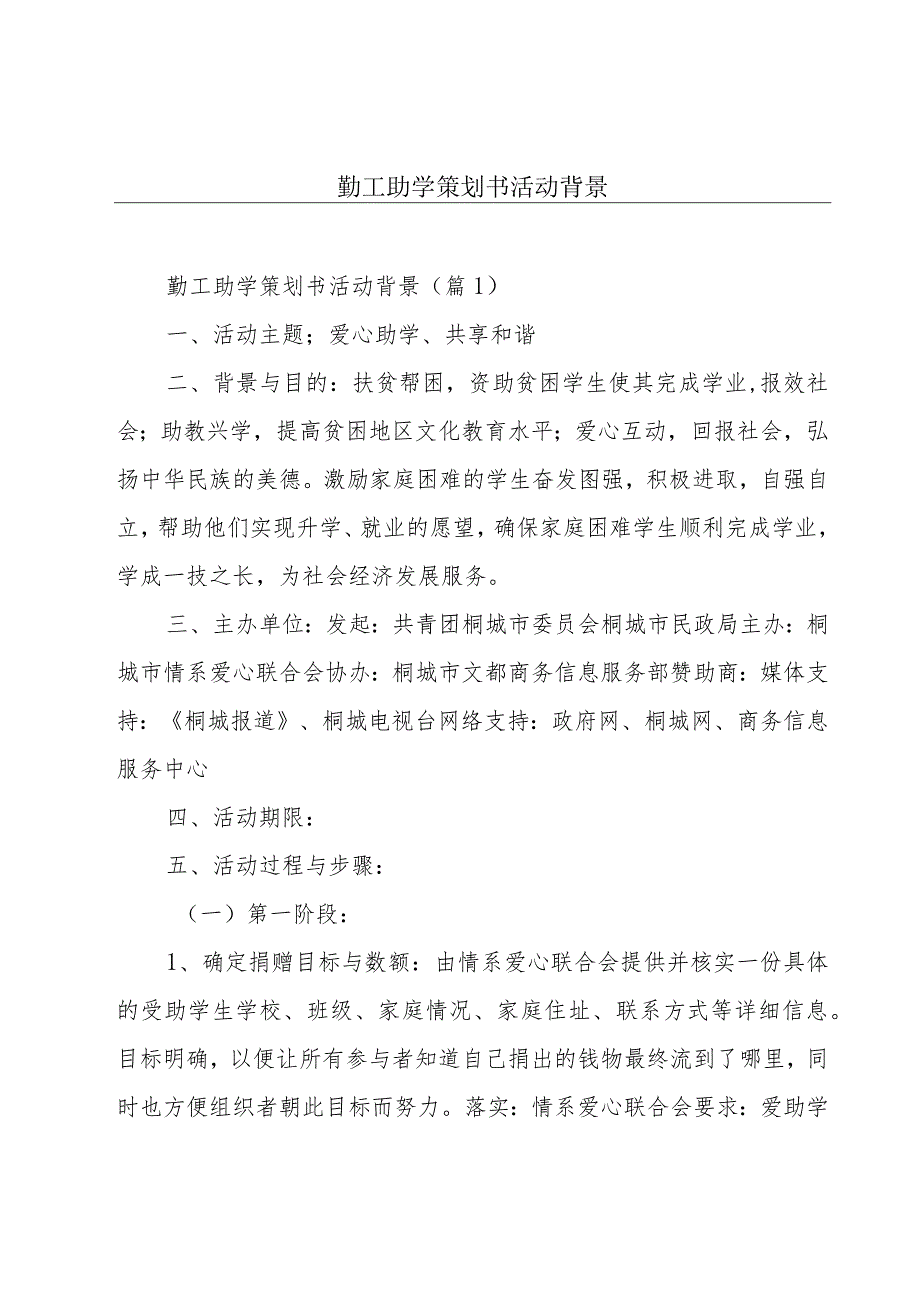 勤工助学策划书活动背景
勤工助学策划书活动背景（篇1）
一、活动主题；爱心助学、共享和谐
二、背景与目的：扶贫帮困，资助贫困学生使其完成学业,报效社
会；助教兴学，提高贫困地区文化教育水平；爱心互动，回报社会，弘
扬中华民族的美德。激励家庭困难的学生奋发图强，积极进取，自强自
立，帮助他们实现升学、就业的愿望，确保家庭困难学生顺利完成学业，
学成一技之长，为社会经济发展服务。
三、主办单位：发起：共青团桐城市委员会桐城市民政局主办：桐
城市情系爱心联合会协办：桐城市文都商务信息服务部赞助商：媒体支
持：《桐城报道》、桐城电视台网络支持：政府网、桐城网、商务信息
服务中心
四、活动期限：
五、活动过程与步骤：
（一）第一阶段：
1、确定捐赠目标与数额：由情系爱心联合会提供并核实一份具体
的受助学生学校、班级、家庭情况、家庭住址、联系方式等详细信息。
目标明确，以便让所有参与者知道自己捐出的钱物最终流到了哪里，同
时也方便组织者朝此目标而努力。落实：情系爱心联合会要求：爱助学